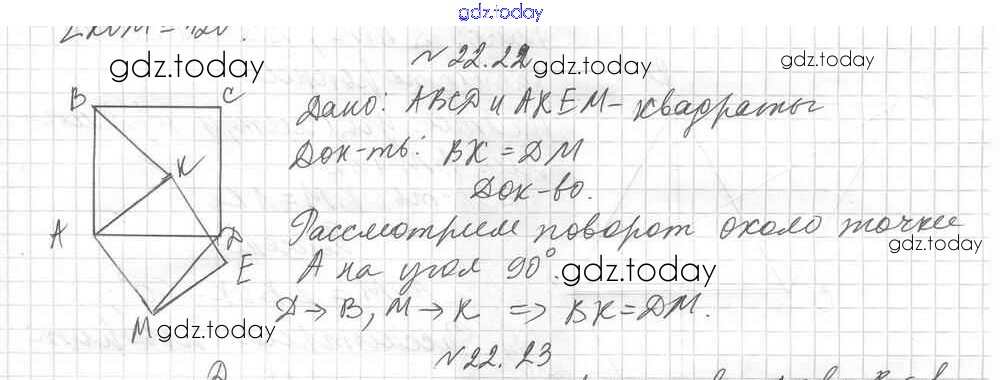 gdz.today
№22.22
gdz.today
gdz.today
gdz.today
B
C
K
A
D
E
M
Дано: ABCD и AKEM - квадраты
Док-ть: BK = DM
Док-во.
Рассмотрим поворот около точки
gdz.today
A на угол 90°.
gdz.today
D → B, M → K ⇒ BK = DM.
gdz.today
№22.23